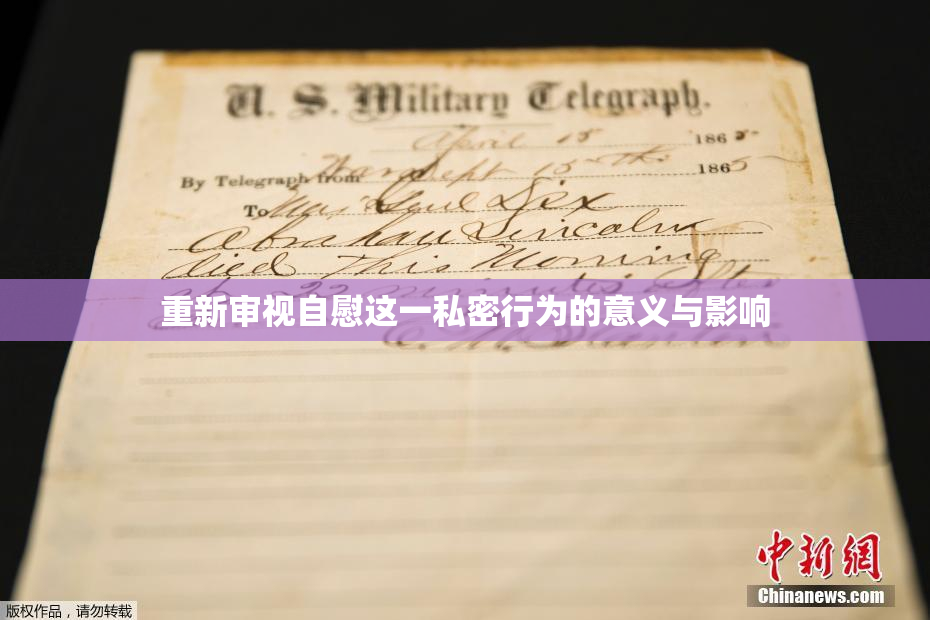 U. S. Military Telegraph.
April 15 1865
By Telegraph from War Dept 15th 1865
To Maj Genl Dix
Abraham Lincoln
died This Morning
at 22 minutes after
重新审视自慰这一私密行为的意义与影响
E. M. Stanton
中新网
Chinanews.com
版权作品，请勿转载